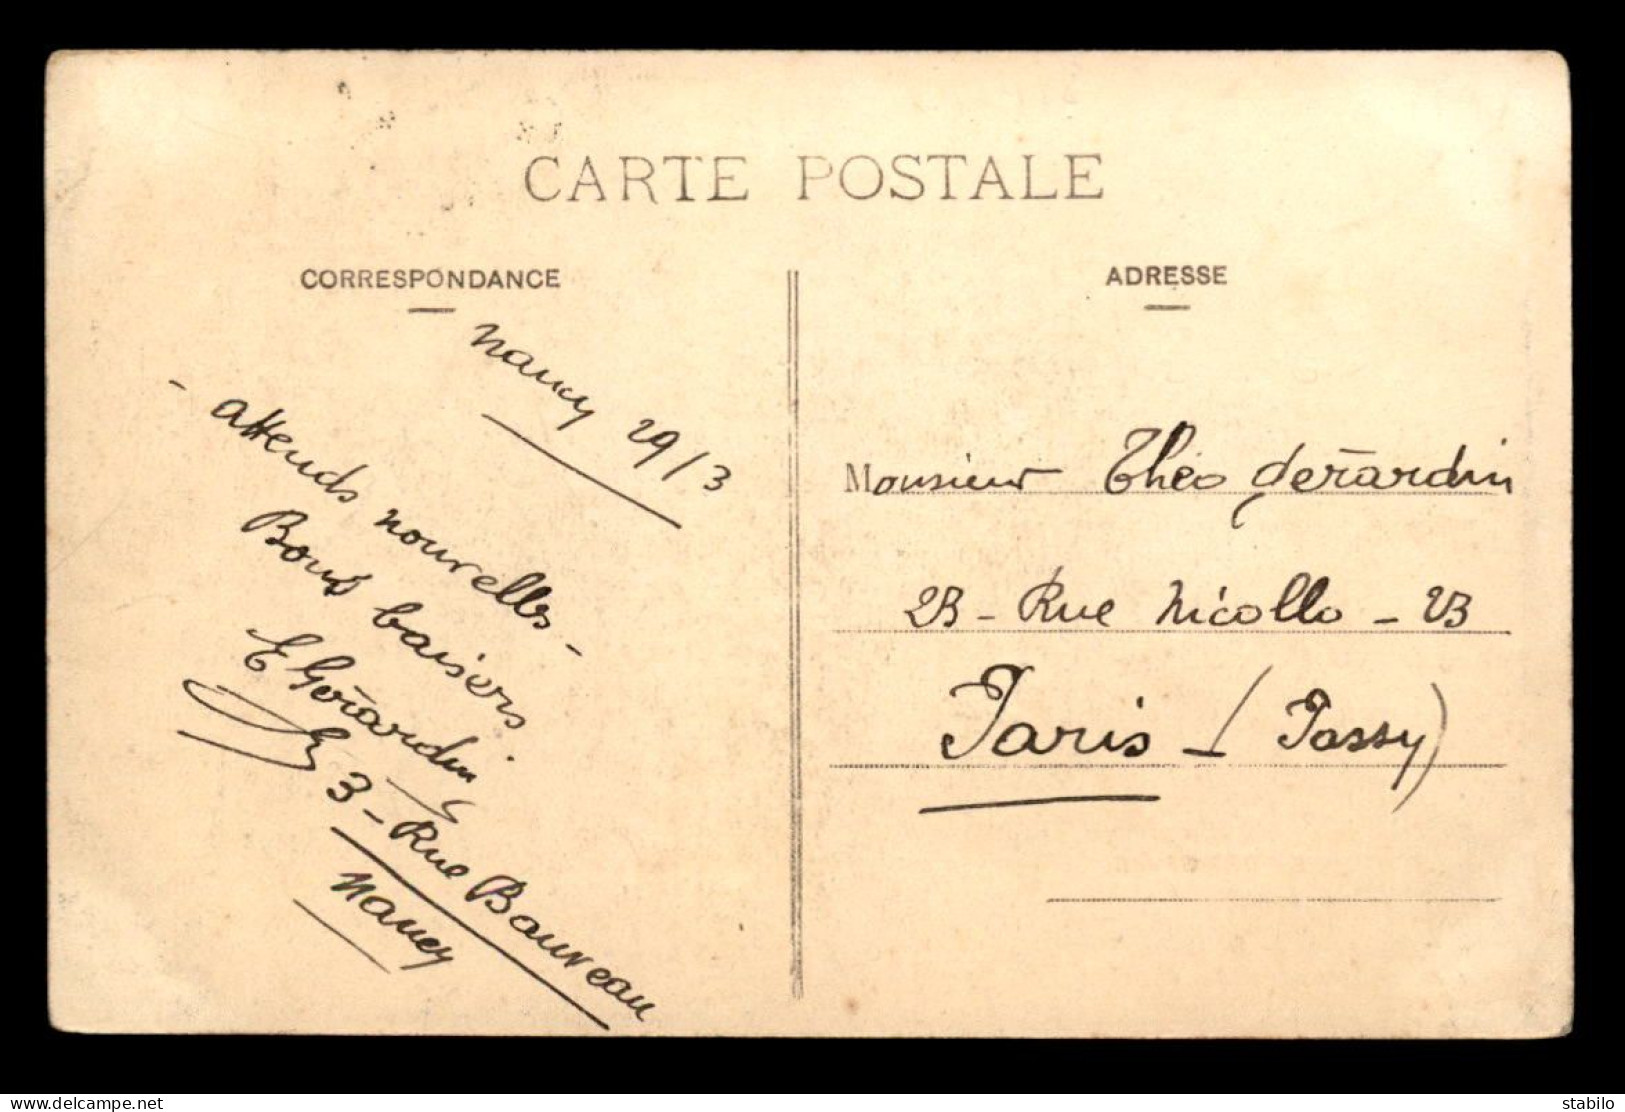 CARTE POSTALE
CORRESPONDANCE
Nancy 29/3
- Attends nouvelles -
Bons baisers
E Gérardin
3 - Rue Bauveau
Nancy
ADRESSE
Monsieur Théo Gérardin
23 - Rue Nicollo - 23
Paris - (Passy)
delcampe.net
stabilo